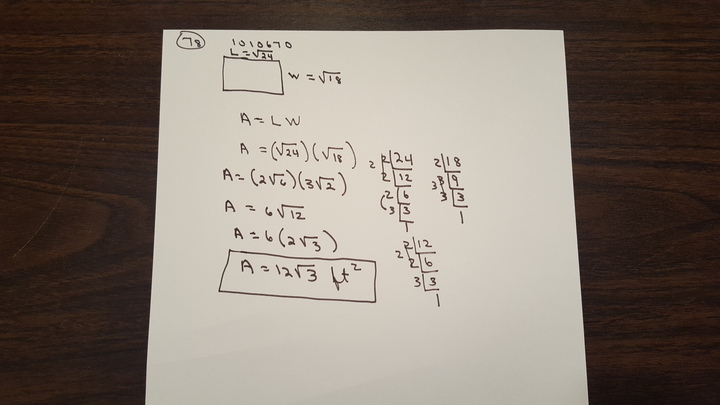 78
1010670
L = √24
W = √18
A = LW
A = (√24)(√18)
A = (2√6)(3√2)
A = 6√12
A = 6(2√3)
A = 12√3 ft²
2 2 24
2 12
2 6
3 3
1
2 18
3 3 9
3 3
1
2 2 12
2 6
3 3
1